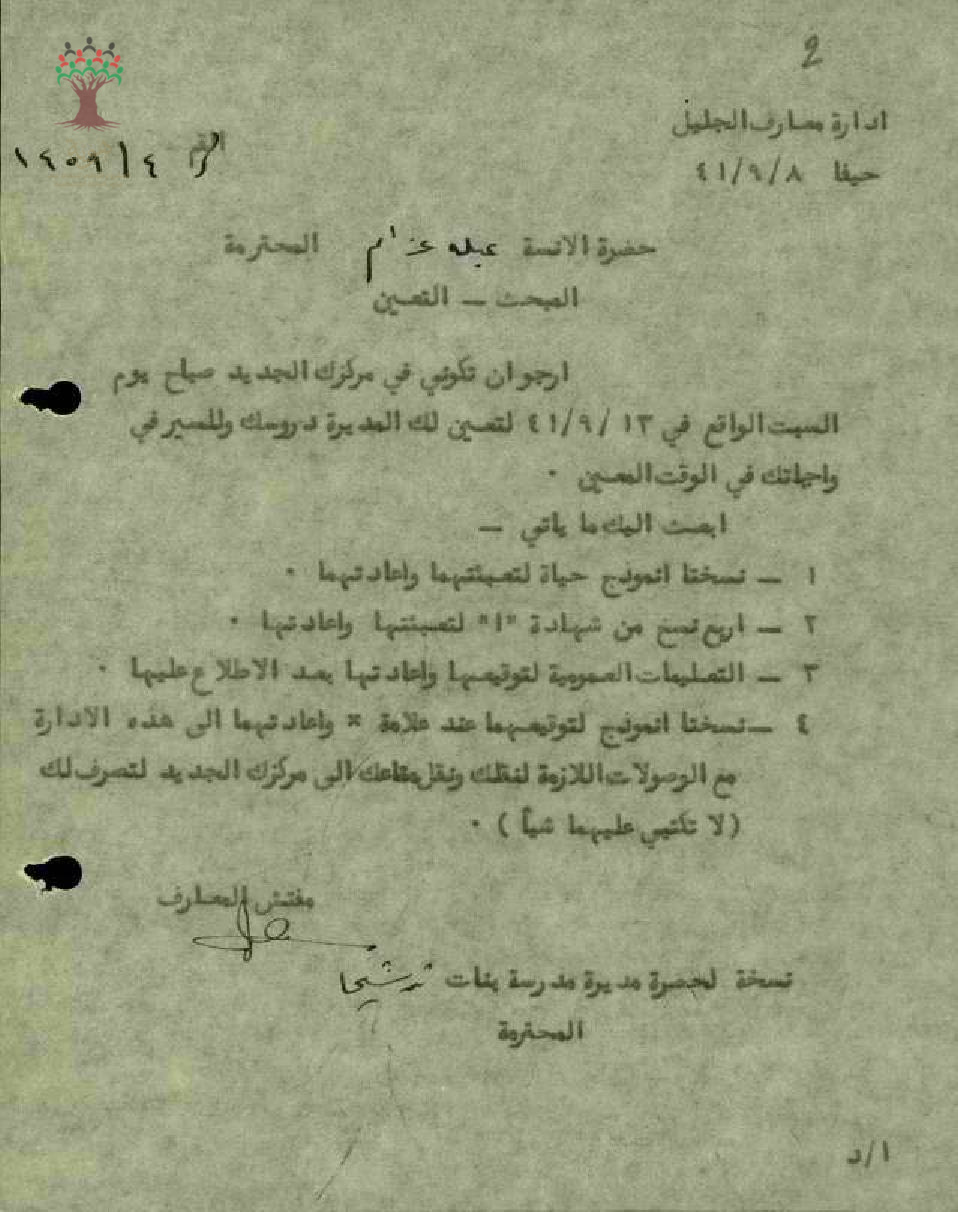 2
ادارة معارف الجليل
الرقم ١٤٥٩/٤
حيفا ٤١/٩/٨
حضرة الانسة عبله عزام المحترمة
المبحث — التعيين
ارجو ان تكوني في مركزك الجديد صباح يوم
السبت الواقع في ١٣ /٤١/٩ لتعين لك المديرة دروسك وللسير في
واجباتك في الوقت المعين ٠
ابعث اليك ما ياتي —
١ — نسختا انموذج حياة لتعبئتهما واعادتهما ٠
٢ — اربع نسخ من شهادة "ا" لتعبئتها واعادتها ٠
٣ — التعليمات العمومية لتوقيعها واعادتها بعد الاطلاع عليها ٠
٤ — نسختا انموذج لتوقيعهما عند علامة × واعادتهما الى هذه الادارة
مع الوصولات اللازمة لنقلك ونقل متاعك الى مركزك الجديد لتصرف لك
(لا تكتبي عليهما شيأ ) ٠
مفتش المعارف
نسخة لحضرة مديرة مدرسة بنات ترشيحا
المحترمة
ا/د